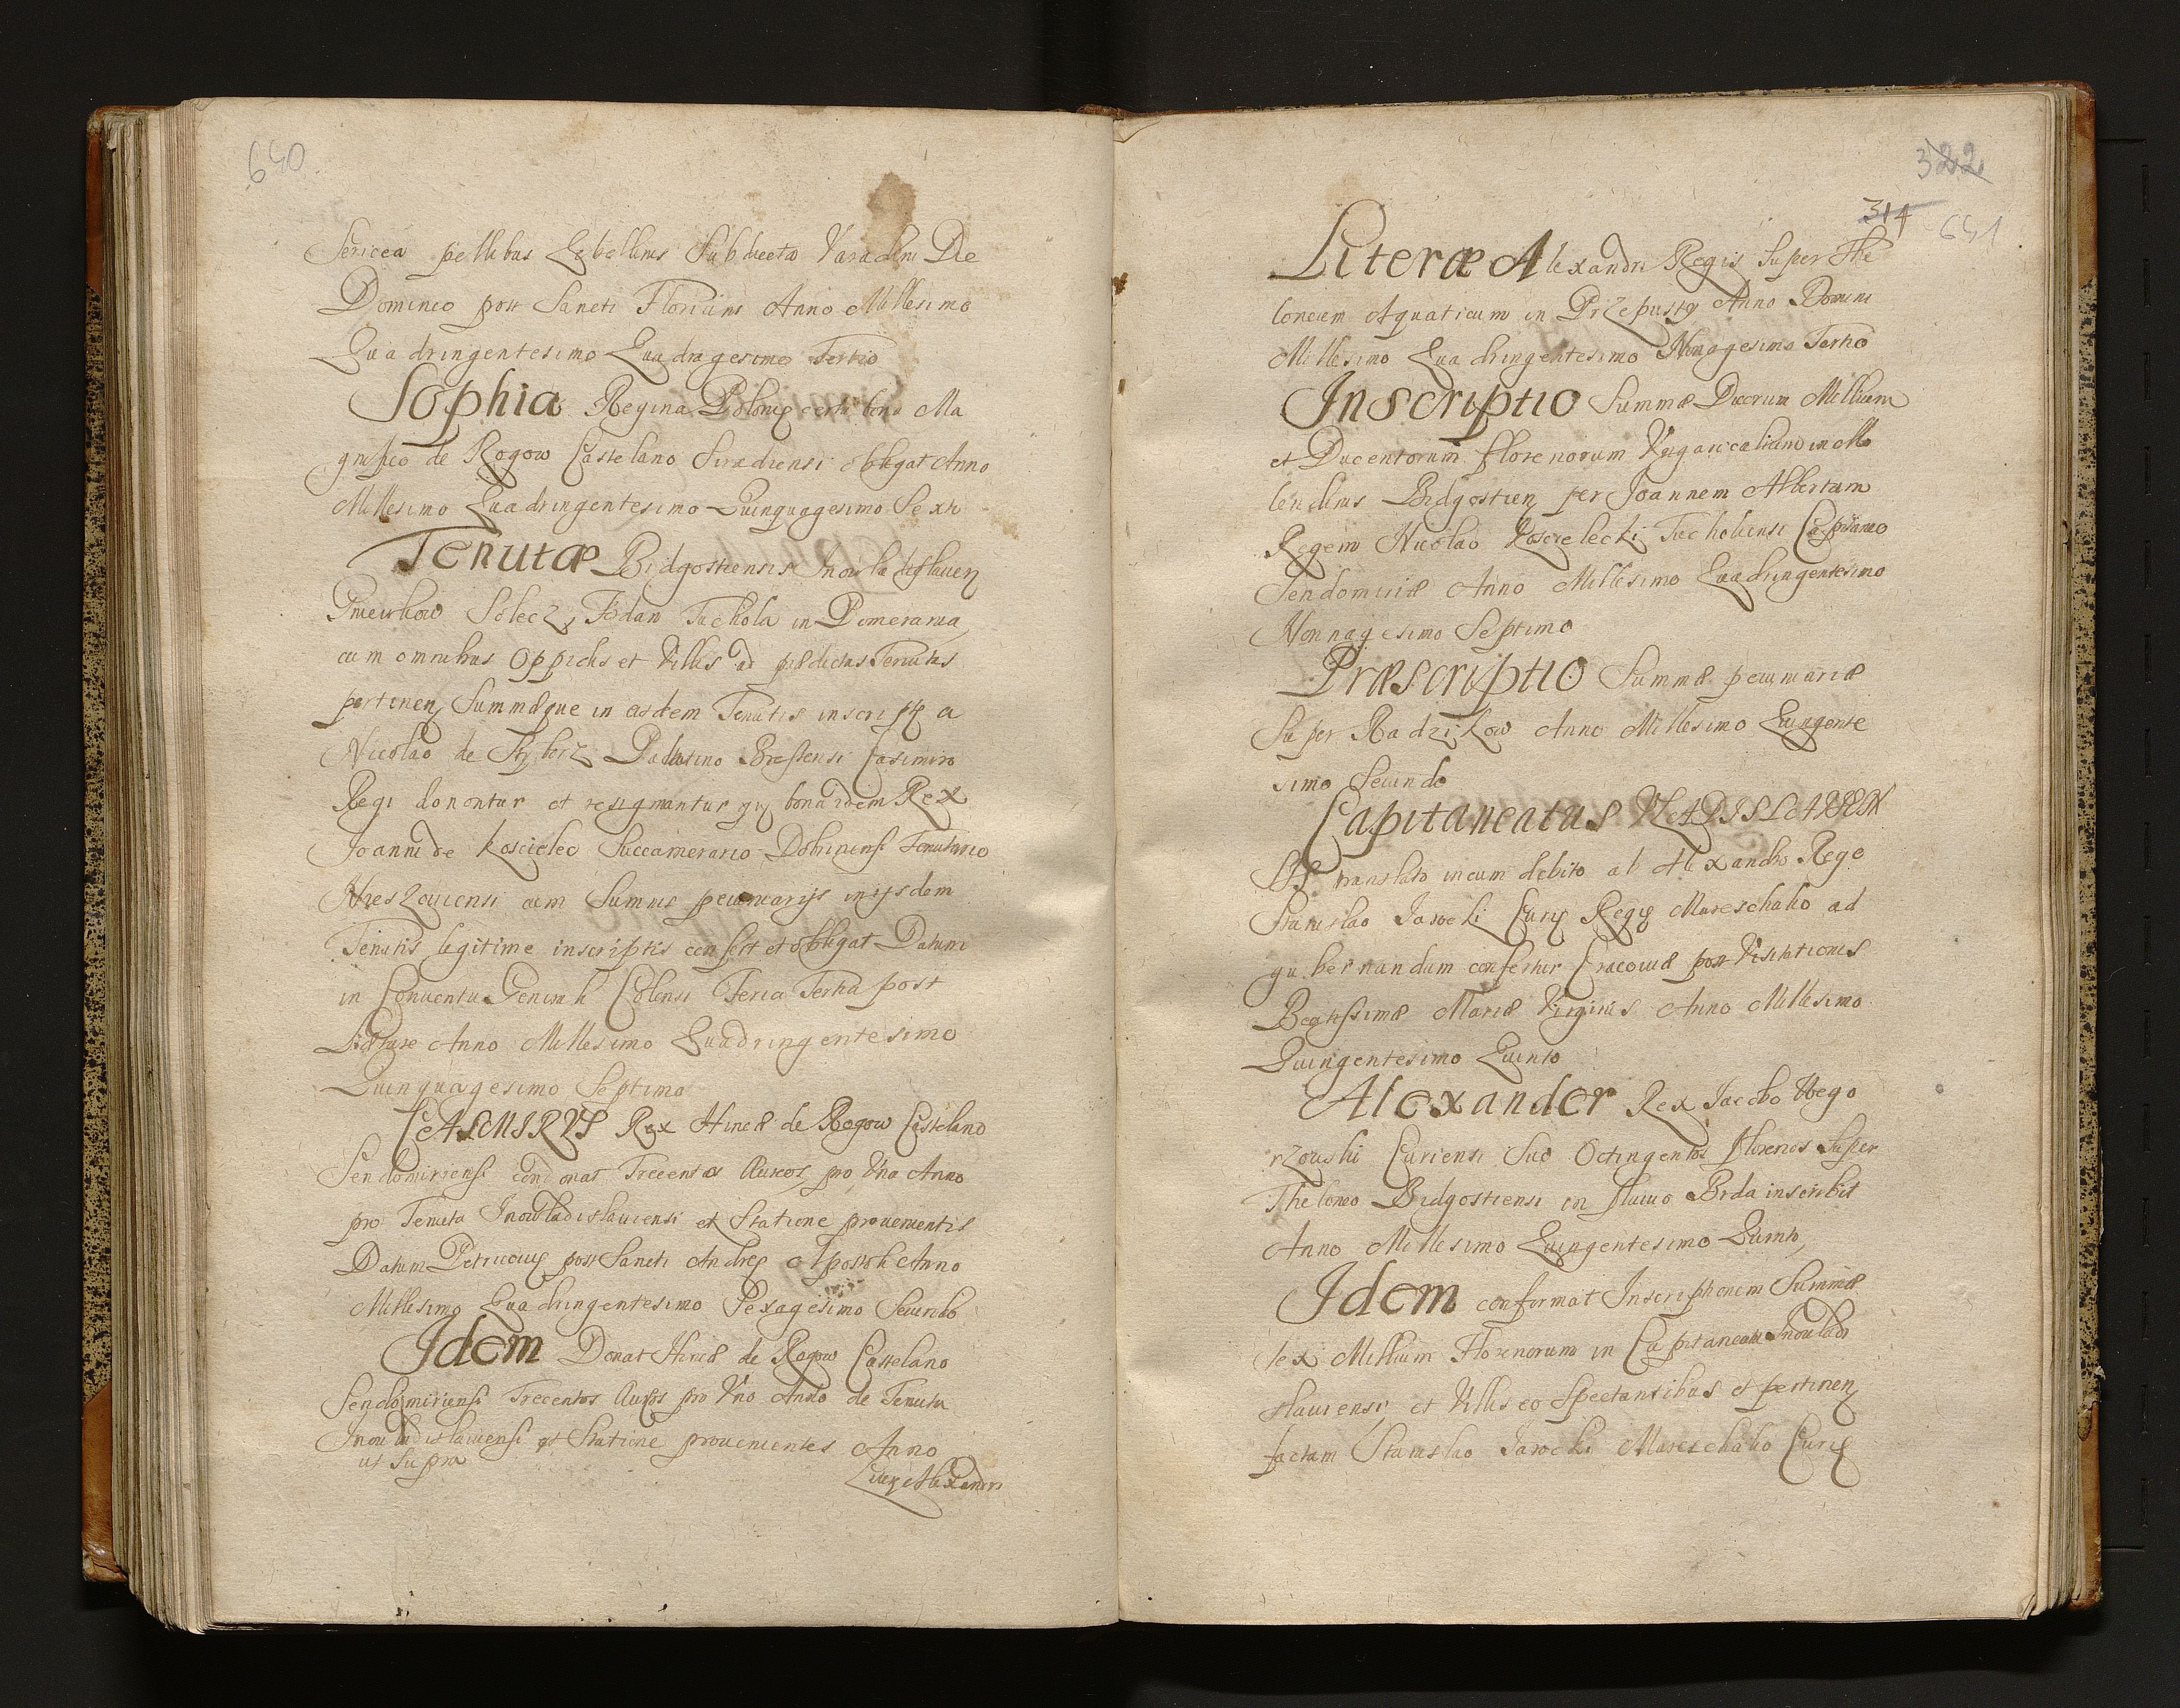 640
Sericea pellibus Zebellinis Subducta Varadini Die
Dominico post Sancti Floriani Anno Millesimo
Quadringentesimo Quadragesimo Tertio
Sophia Regina Polonię certa bona Ma
gnifico de Rogow Castelano Siradiensi obligat Anno
Millesimo Quadringentesimo Quinquagesimo Sexto
Tenutæ Bidgostiensis Inowladislauien
Gniewkow Solecz, Jodan Tuchola in Pomerania,
cum omnibus Oppidis et Villis ad prædictas Tenutas
pertinen Summæque in eisdem Tenutis inscriptę a
Nicolao de Sczyborz Palatino Brestensi Casimiro
Regi donontur et resignantur quę bona idem Rex
Joanni de Koscielec Succamerario Dobrinensi Tenutario
cum Summis pecuniarijs in ijsdem
Tenutis legitime inscriptis confert et obligat Datum
in Conuentu Generali Colensi Feria Tertia post
Lætare Anno Millesimo Quadringentesimo
Quinquagesimo Septimo
CASMIRVS Rex Hincæ de Rogow Castelano
Sendomiriensi condonat Trecentos Aureos, pro Vno Anno
pro Tenuta Inowladislauiensi et Statione prouenientis
Datum Petricouię post Sancti Andreę Apostoli Anno
Millesimo Quadringentesimo Sexagesimo Secundo
Idem Donat Hincæ de Rogow Castelano
Sendomiriensi Trecentos Aureos pro Vno Anno de Tenuta
Inowladislauiensi et Statione prouenientes Anno
ut Supra
Literę Alexandri
322
314 641
Literæ Alexandri Regis Super The
loneum Aquaticum in Przepusty Anno Domini
Millesimo Quadringentesimo Nonagesimo Tertio
Inscriptio Summæ Duorum Millium
et Ducentorum florenorum Vngaricalium in Mo
lendinis Bidgostien per Joannem Albertum
Regem Nicolao Koscielecki Tucholiensi Capitaneo
Sendomiriæ Anno Millesimo Quadringentesimo
Nonnagesimo Septimo
Præscriptio Summæ pecuniariæ
Super Radzikow Anno Millesimo Quingente
simo Secundo
Capitaneatus VLADISLAVIEN
SIS translato in eum debito ab Alexandro Rege
Stanislao Jarocki Curię Regię Mareschalco ad
gubernandum confertur Cracouiæ post Visitationis
Beatissimæ Mariæ Virginis Anno Millesimo
Quingentesimo Quinto
Alexander Rex Jacobo Wego
rzowski Curiensi Suo Octingentos florenos Super
Theloneo Bidgostiensi in fluuio Brda inscribit
Anno Millesimo Quingentesimo Quinto,
Idem confirmat Inscriptionem Summæ
sex Millium Florenorum in Capitaneatu Inowladi
slauiensi, et Villis eo Spectantibus et pertinen
factam Stanislao Jarocki Mareschalco Curię